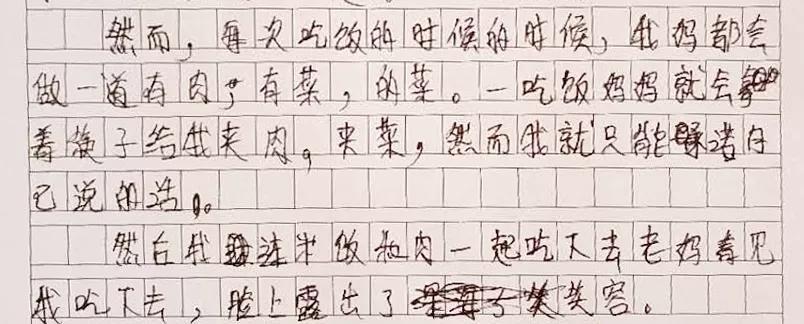 然而，每次吃饭的时候的时候，我妈都会
做一道有肉，有菜，的菜。一吃饭妈妈就会
着筷子给我夹肉。夹菜，然而我就只能 诺自
己说的话。
然后我 连米饭和肉一起吃下去老妈看见
我吃下去，脸上露出了 笑容。